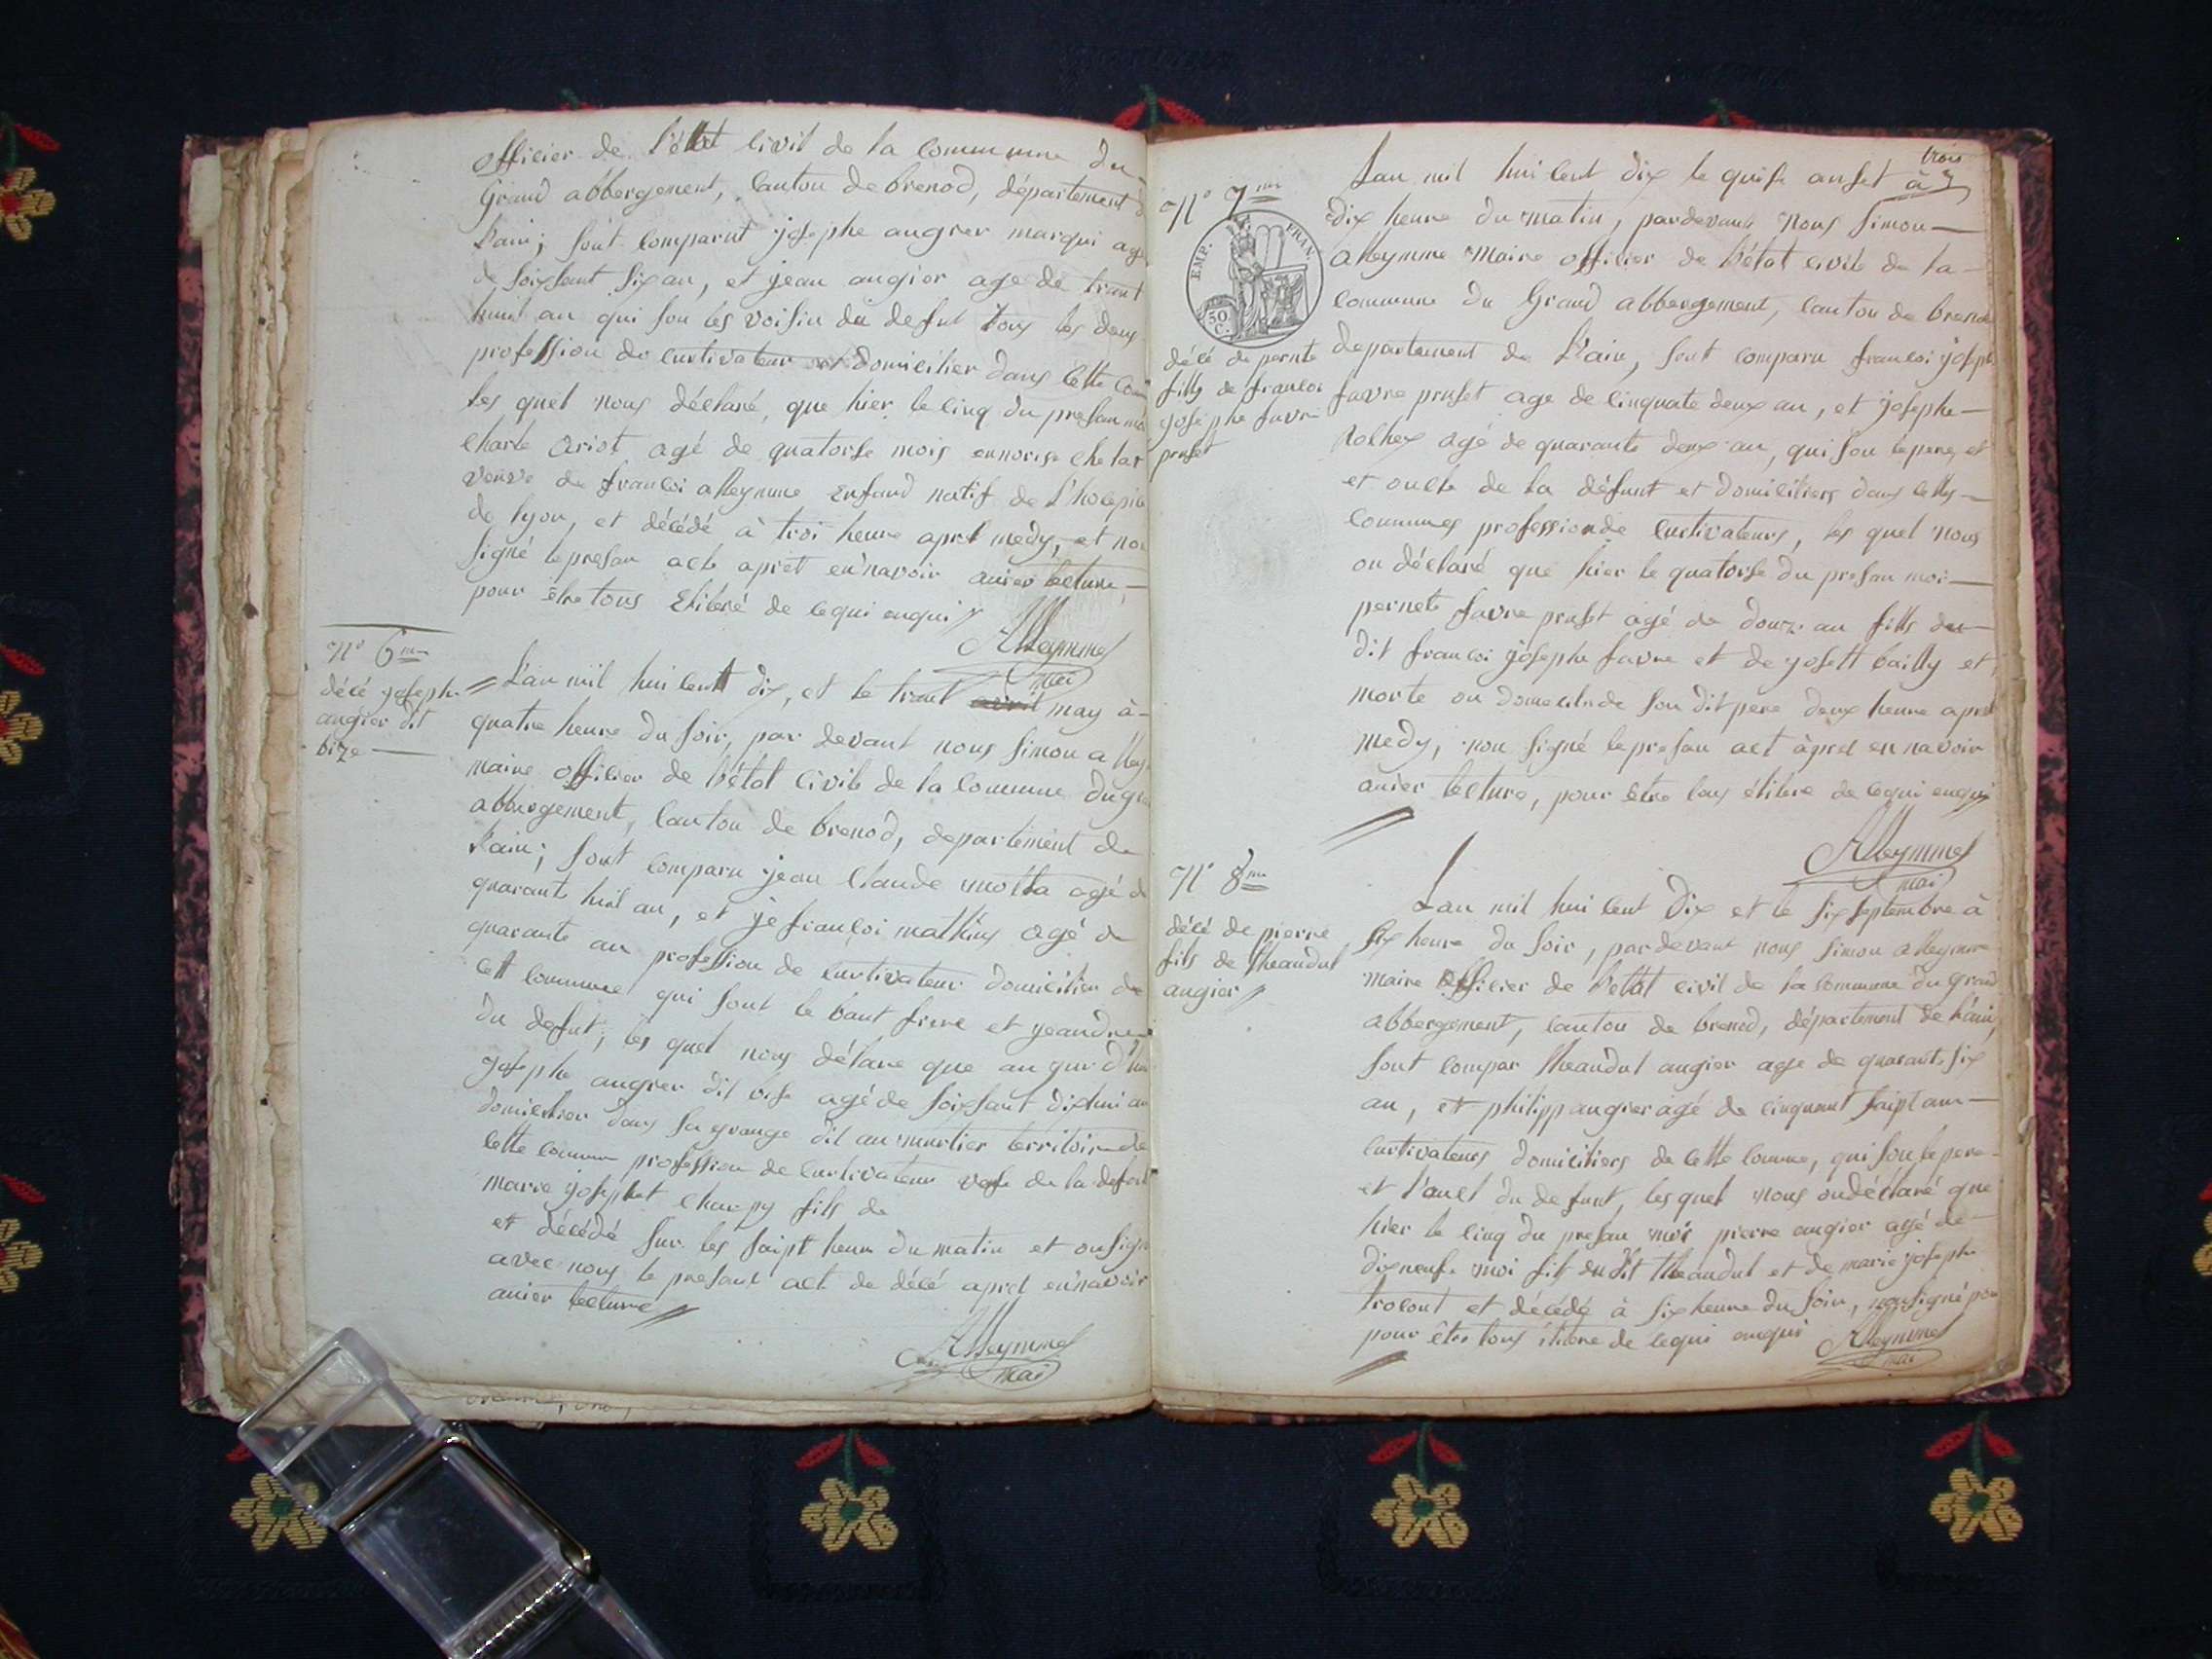 officier de l'état civil de la commune du
Grand abbergement, canton de brenod, département d
L'ain; sont comparut josephe augier marqui agé
de soixsent six an, et jean augier age de trant
huit an qui son les voisin du defut tous les deux
profession de curtivateur domicilier dans cette com
les quel nous déclaré, que hier le cinq du presan moi
charle Ariot agé de quatorse mois
veuve de françoi alleymme Enfand natif de L'hospi
de lyon, et décédé à troi heure apret medy, et non
signé le presan acte apret en navoir anier lecture,
pour être tous de cequi enqui
Alleymme
mai
N° 6me
décé joseph
augier dit
bize
L'an mil hui cent dix, et le trant avril may à
quatre heure du soir, par devant nous simon alley
maire officier de l'état civile de la commune du gr
abbergement, canton de brenod, departement de
L'ain; sont comparu jean claude molla agé de
quarant huit an, et je françoi mathieux agé de
quarante an profession de curtivateur domicilier de
cett commune qui sont le baut frere et jeandre
du defut, les quel nous déclare que au jour d'hui
Josephe augier dit bise agé de soixsant dixhui an
domicilier dans sa grange dit au murtier territoire de
cette commun profession de curtivateur vefe de la defont
marie josephet charpy fils de
et décédé sur les saipt heur du matin et onsign
avec nous le presant act de décé apret en navoir
anier lecture
Alleymme
mai
trois
N° 7me
EMP. FRAN.
50 C.
décé de pernete
filly de françoi
josephe favre
prufet
Lan mil hui cent dix le quise auset à
dix heure du matin, pardevant nous simon
alleymme Maire officier de l'état civile de la
commune du Grand abbergement, canton de brenod
departement de L'ain, sont comparu françoi joseph
favre prufet age de cinquate deux an, et josephe
Rolhex agé de quarante deux an, qui son le pere, et
et oncle de la défunt et domiciliers dans cettes
communes profession de curtivateurs, les quel nous
on déclaré que hier le quatorse du presan moi
pernete favre prufet agé de douze an fills du
dit françoi josephe favre et de josett bailly et
morte ou domecile de son dit pere deux heure apret
medy, non signé le presan act àpret en navoir
anier lecture, pour être tous de cequi enqui
Alleymme
mai
N° 8me
décé de pierre
fils de theaudul
augier
Lan mil hui cent Dix et le six septembre à
six heure du soir, pardevant nous simon alleymme
maire officier de l'etat civil de la commune du grand
abbergement, canton de brenod, département de L'ain,
sont compar theaudul augier age de quarante six
an, et philipp augier agé de cinquant saipt an
curtivateurs domiciliers de cette comune, qui son le pere
et l'oncl du defunt, les quel nous ondéclaré que
hier le cinq du presan moi pierre augier agé de
dixneufe moi fils du dit theaudul et de marie josephe
trocont et décédé à six heure du soir, nonsigné pou
pour être tous de cequi enqui Alleymme
mai